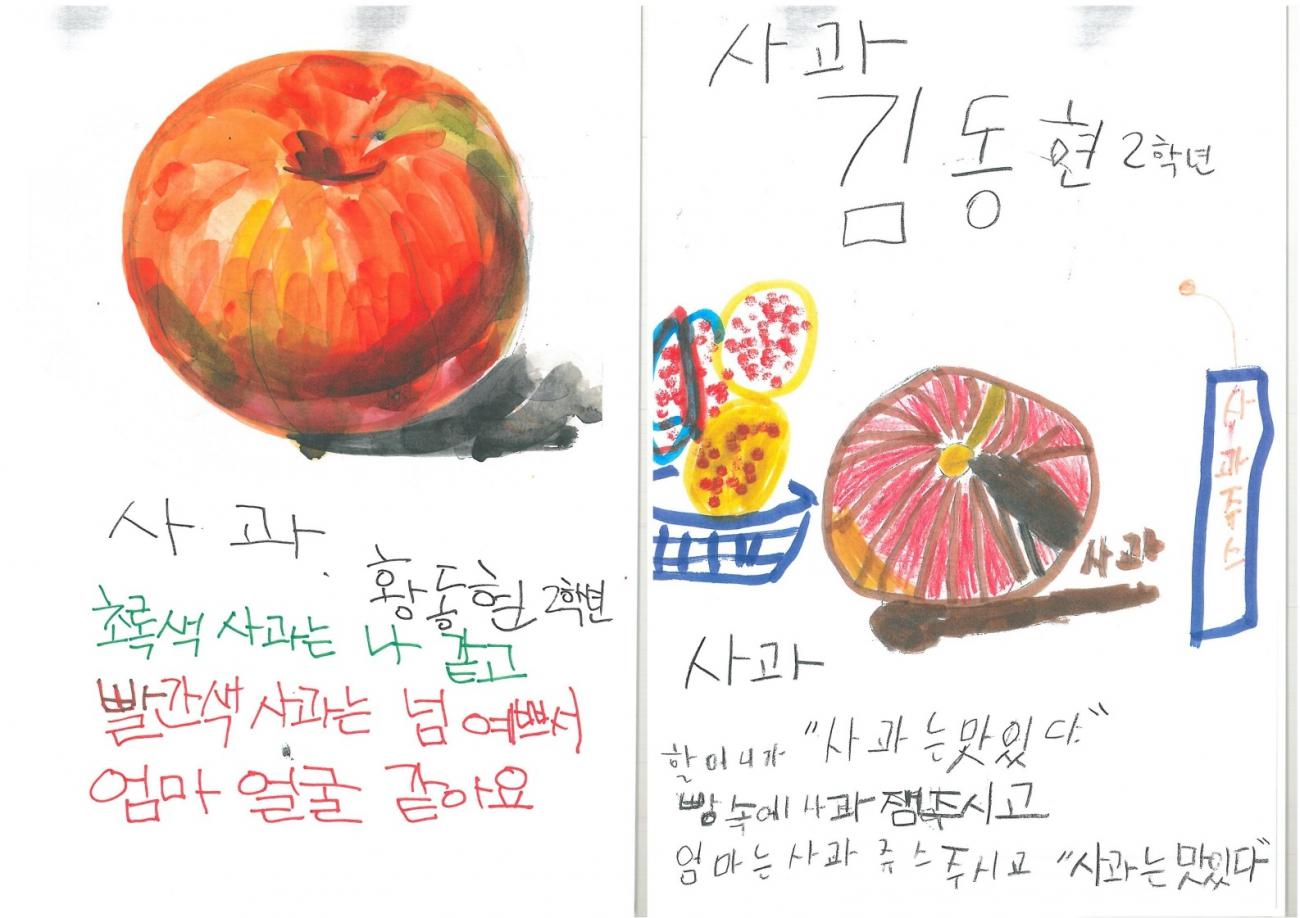 사과
황동현 2학년
초록색 사과는 나 같고
빨간색 사과는 넘 예쁘서
엄마 얼굴 같아요
사과
김동현 2학년
사과쥬스
사과
사과
할머니가 "사과는맛있다"
빵 속에 사과 잼주시고
엄마는 사과 쥬스 주시고 "사과는맛있다"